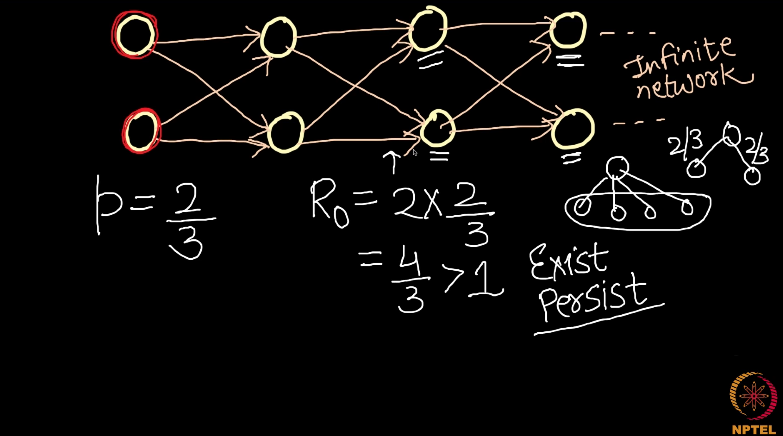 Infinite
network
2/3 2/3
p = 2/3
R₀ = 2 × 2/3
= 4/3 > 1
Exist
Persist
NPTEL